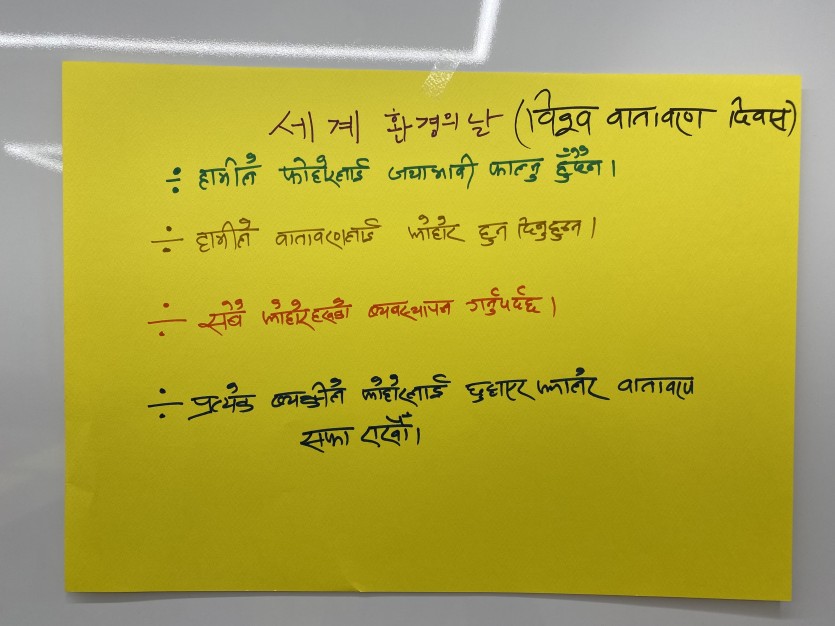 세계 환경의 날 (विश्व वातावरण दिवस)
÷ हामीले फोहोरलाई जथाभावी फाल्नु हुँदैन।
÷ हामीले वातावरणलाई फोहोर हुन दिनुहुन्न।
÷ सबै फोहोरहरुको ब्यवस्थापन गर्नुपर्दछ।
÷ प्रत्येक ब्यक्तीले फोहोरलाई छुट्टाएर फालेर वातावरण
सफा राखौं।